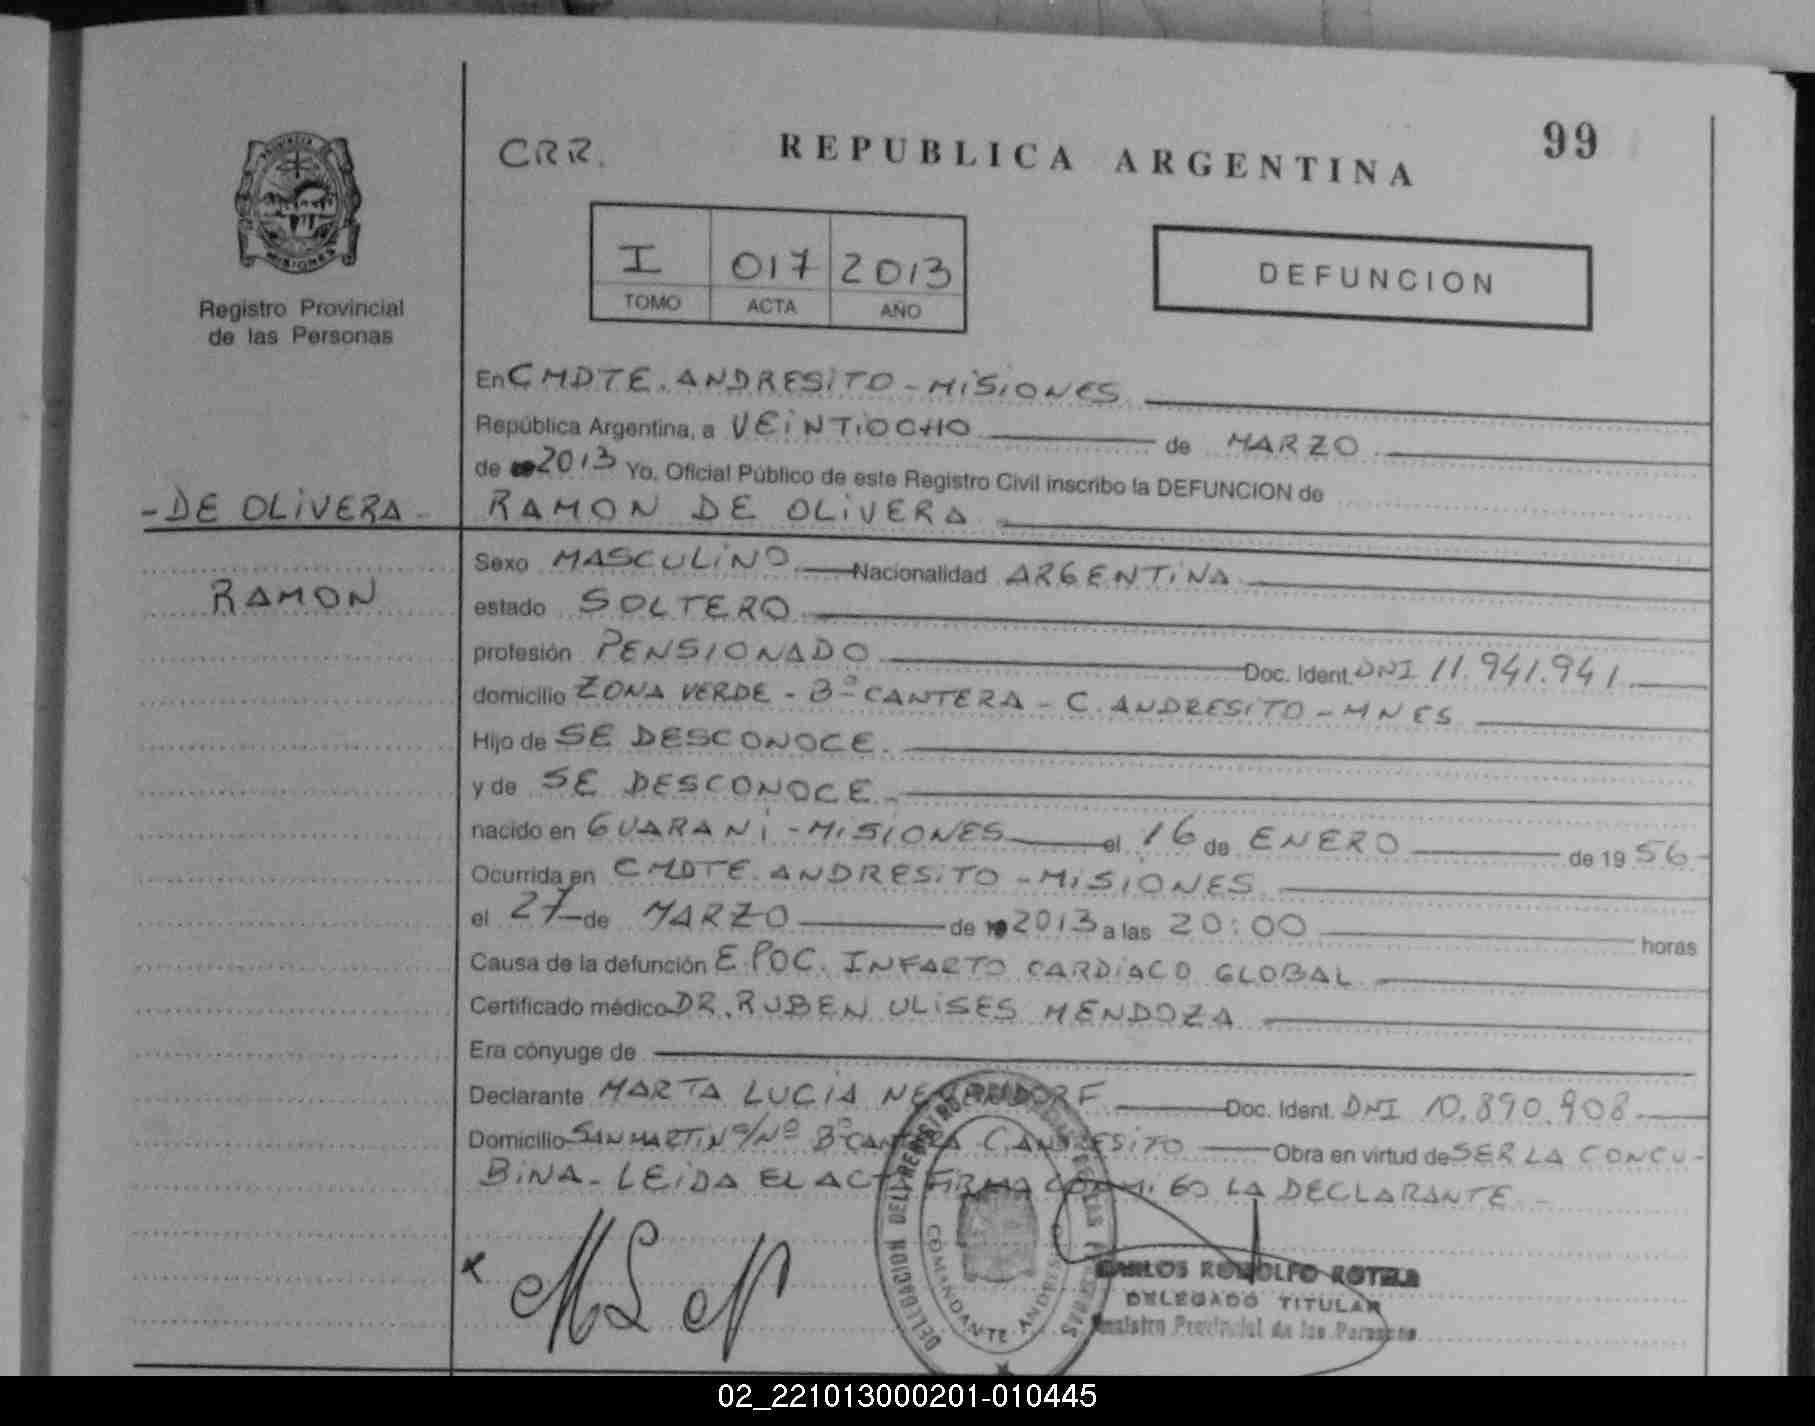 PROVINCIA DE
MISIONES
Registro Provincial
de las Personas
-DE OLIVERA-
RAMON
CRR.
REPUBLICA ARGENTINA
99
I 017 2013
TOMO ACTA AÑO
DEFUNCION
En CMDTE. ANDRESITO - MISIONES
República Argentina, a VEINTIOCHO de MARZO
de 2013 Yo, Oficial Público de este Registro Civil inscribo la DEFUNCION de
RAMON DE OLIVERA
Sexo MASCULINO Nacionalidad ARGENTINA
estado SOLTERO
profesión PENSIONADO Doc. Ident. DNI 11.941.941
domicilio ZONA VERDE - Bº CANTERA - C. ANDRESITO - MNES
Hijo de SE DESCONOCE
y de SE DESCONOCE
nacido en GUARANI - MISIONES el 16 de ENERO de 1956-
Ocurrida en CMDTE. ANDRESITO - MISIONES
el 27 de MARZO de 2013 a las 20:00 horas
Causa de la defunción E.POC. INFARTO CARDIACO GLOBAL
Certificado médico DR. RUBEN ULISES MENDOZA
Era cónyuge de
Declarante MARTA LUCIA Doc. Ident. DNI 10.890.908
Domicilio SAN MARTIN S/Nº Bº CANTERA C. ANDRESITO Obra en virtud de SER LA CONCU-
BINA - LEIDA EL ACTA FIRMA CONMIGO LA DECLARANTE -
x MLN
DELEGACION DEL REGISTRO DE LAS PERSONAS
COMANDANTE ANDRESITO
CARLOS RODOLFO ROTELA
DELEGADO TITULAR
Registro Provincial de las Personas
02_221013000201-010445